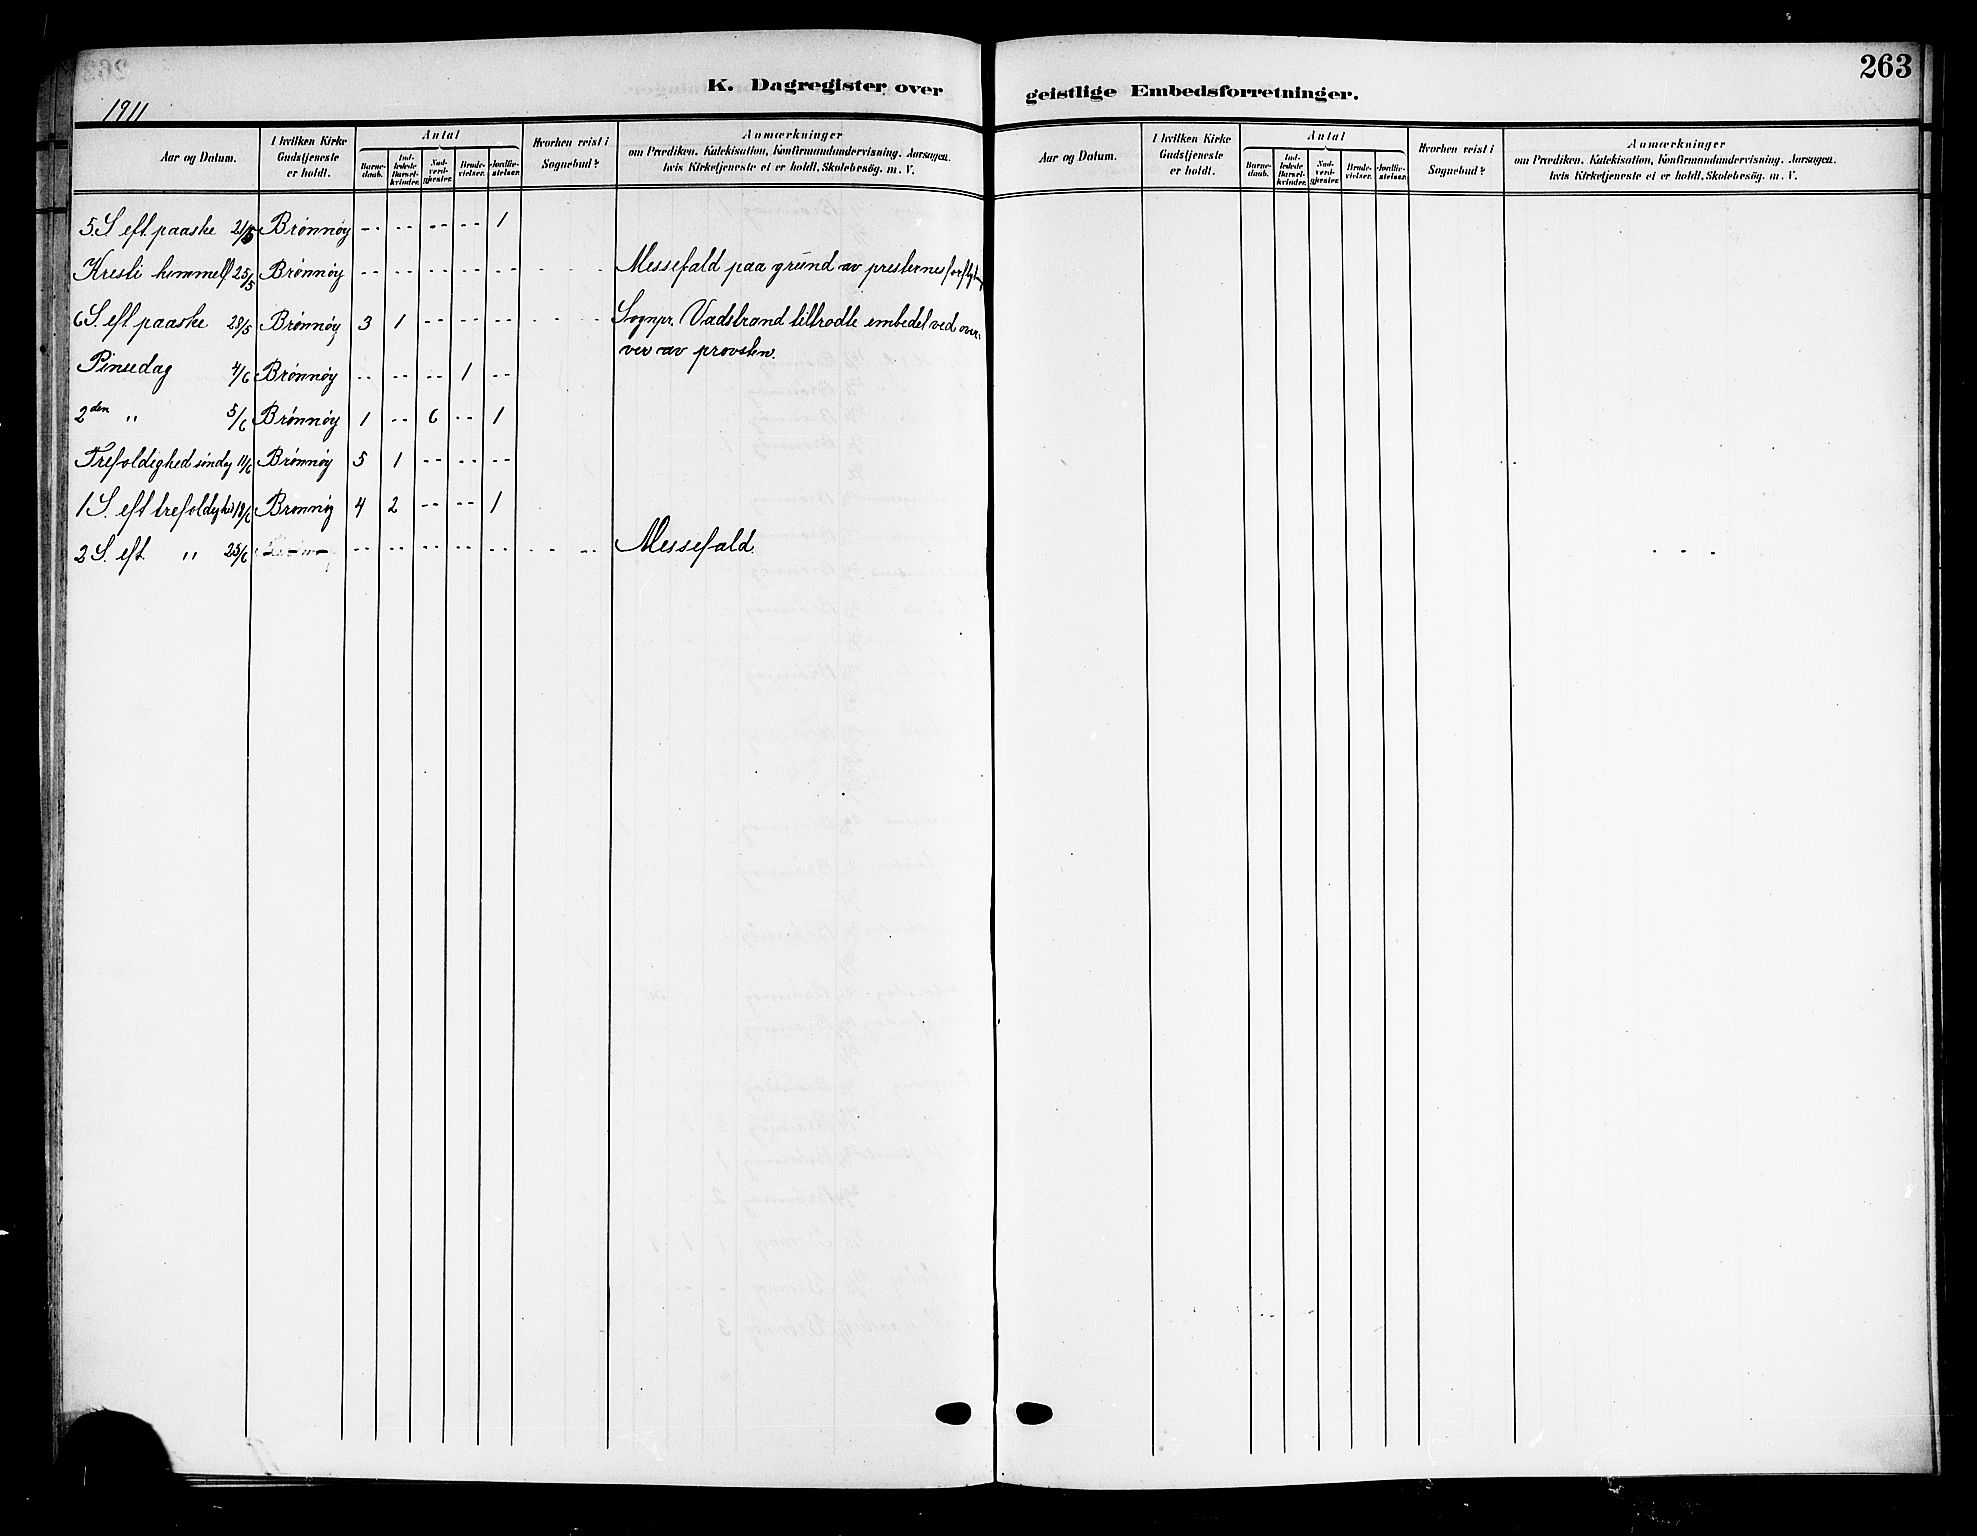 263
K. Dagregister over geistlige Embedsforretninger.
1911
Aar og Datum.
I hvilken Kirke Gudstjeneste er holdt.
Antal
Barnedaab.
Indledede Barselkvinder.
Nadverdgjester.
Brudevielser.
Jordfæstelser.
Hvorhen reist i Sognebud?
Anmærkninger
om Prædiken, Katekisation, Konfirmandundervisning, Aarsagen,
hvis Kirketjeneste ei er holdt, Skolebesøg. m. V.
5. S. eft. paaske 21/5 Brønnøy -- -- -- -- 1
Kristi himmelf 25/5 Brønnøy -- -- -- -- -- - - - Messefald paa grund av presternes
6 S. eft. paaske 28/5 Brønnøy 3 1 -- -- -- - - - Sognpr. Vadstrand tiltrodte embedet ved over-
ver av provsten.
Pinsedag 4/6 Brønnøy -- -- -- 1 --
2den " 5/6 Brønnøy 1 -- 6 -- 1
Trefoldighed søndag 11/6 Brønnøy 5 1 -- -- --
1 S. eft trefoldighed 18/6 Brønnøy 4 2 -- -- 1
2 S. eft " 25/6 -- -- -- -- -- - - -- Messefald.
Aar og Datum.
I hvilken Kirke Gudstjeneste er holdt.
Antal
Barnedaab.
Indledede Barselkvinder.
Nadverdgjester.
Brudevielser.
Jordfæstelser.
Hvorhen reist i Sognebud?
Anmærkninger
om Prædiken, Katekisation, Konfirmandundervisning, Aarsagen,
hvis Kirketjeneste ei er holdt, Skolebesøg. m. V.